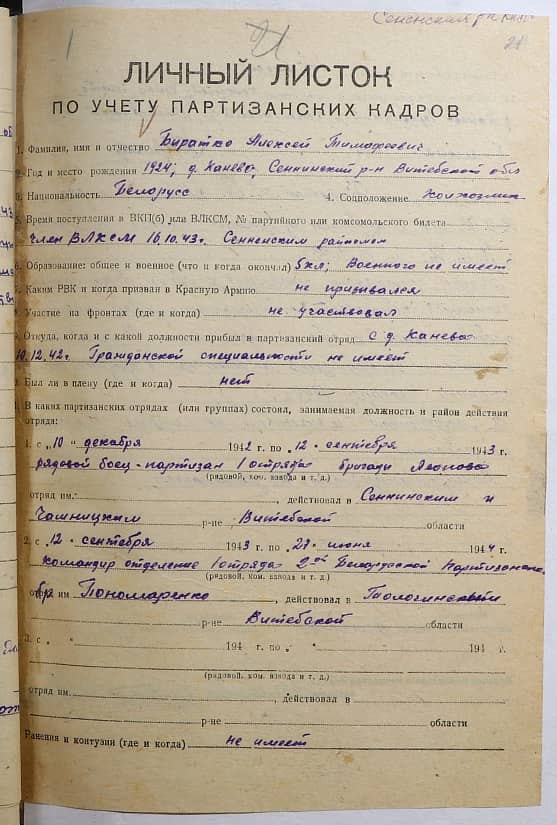 Сенненский р-н
1
21
ЛИЧНЫЙ ЛИСТОК
ПО УЧЕТУ ПАРТИЗАНСКИХ КАДРОВ
1. Фамилия, имя и отчество Биратко Алексей Тимофеевич
2. Год и место рождения 1924; д. Канево, Сеннинский р-н Витебской обл
3. Национальность Белорусс 4. Соцположение колхозник
5. Время поступления в ВКП(б) или ВЛКСМ, № партийного или комсомольского билета
член ВЛКСМ 16.10.43г. Сенненским райкомом
6. Образование: общее и военное (что и когда окончал) 5кл; Военного не имеет
7. Каким РВК и когда призван в Красную Армию не призывался
8. Участие на фронтах (где и когда) не участвовал
Откуда, когда и с какой должности прибыл в партизанский отряд с д. Канево
10.12.42г. Гражданской специальности не имеет
Был ли в плену (где и когда) нет
В каких партизанских отрядах (или группах) состоял, занимаемая должность и район действия
отряда:
1. с „10" декабря 1942 г. по „12" сентября 1943 г.
рядовой боец-партизан 1 отряда бригады Леонова
(рядовой, ком. взвода и т. д.)
отряд им. , действовал в Сеннинским и
Чашницким р-не Витебской области
2. с „12" сентября 1943 г. по „27" июня 1944 г.
командир отделение 1 отряда 2ой Белорусской Партизанск.
(рядовой, ком. взвода и т. д.)
бр им Пономаренко , действовал в Толочинский
р-не Витебской области
3. с „ " 194 г. по „ " 194 г.
(рядовой, ком. взвода и т. д.)
отряд им. , действовал в
р-не области
Ранения и контузии (где и когда) не имеет